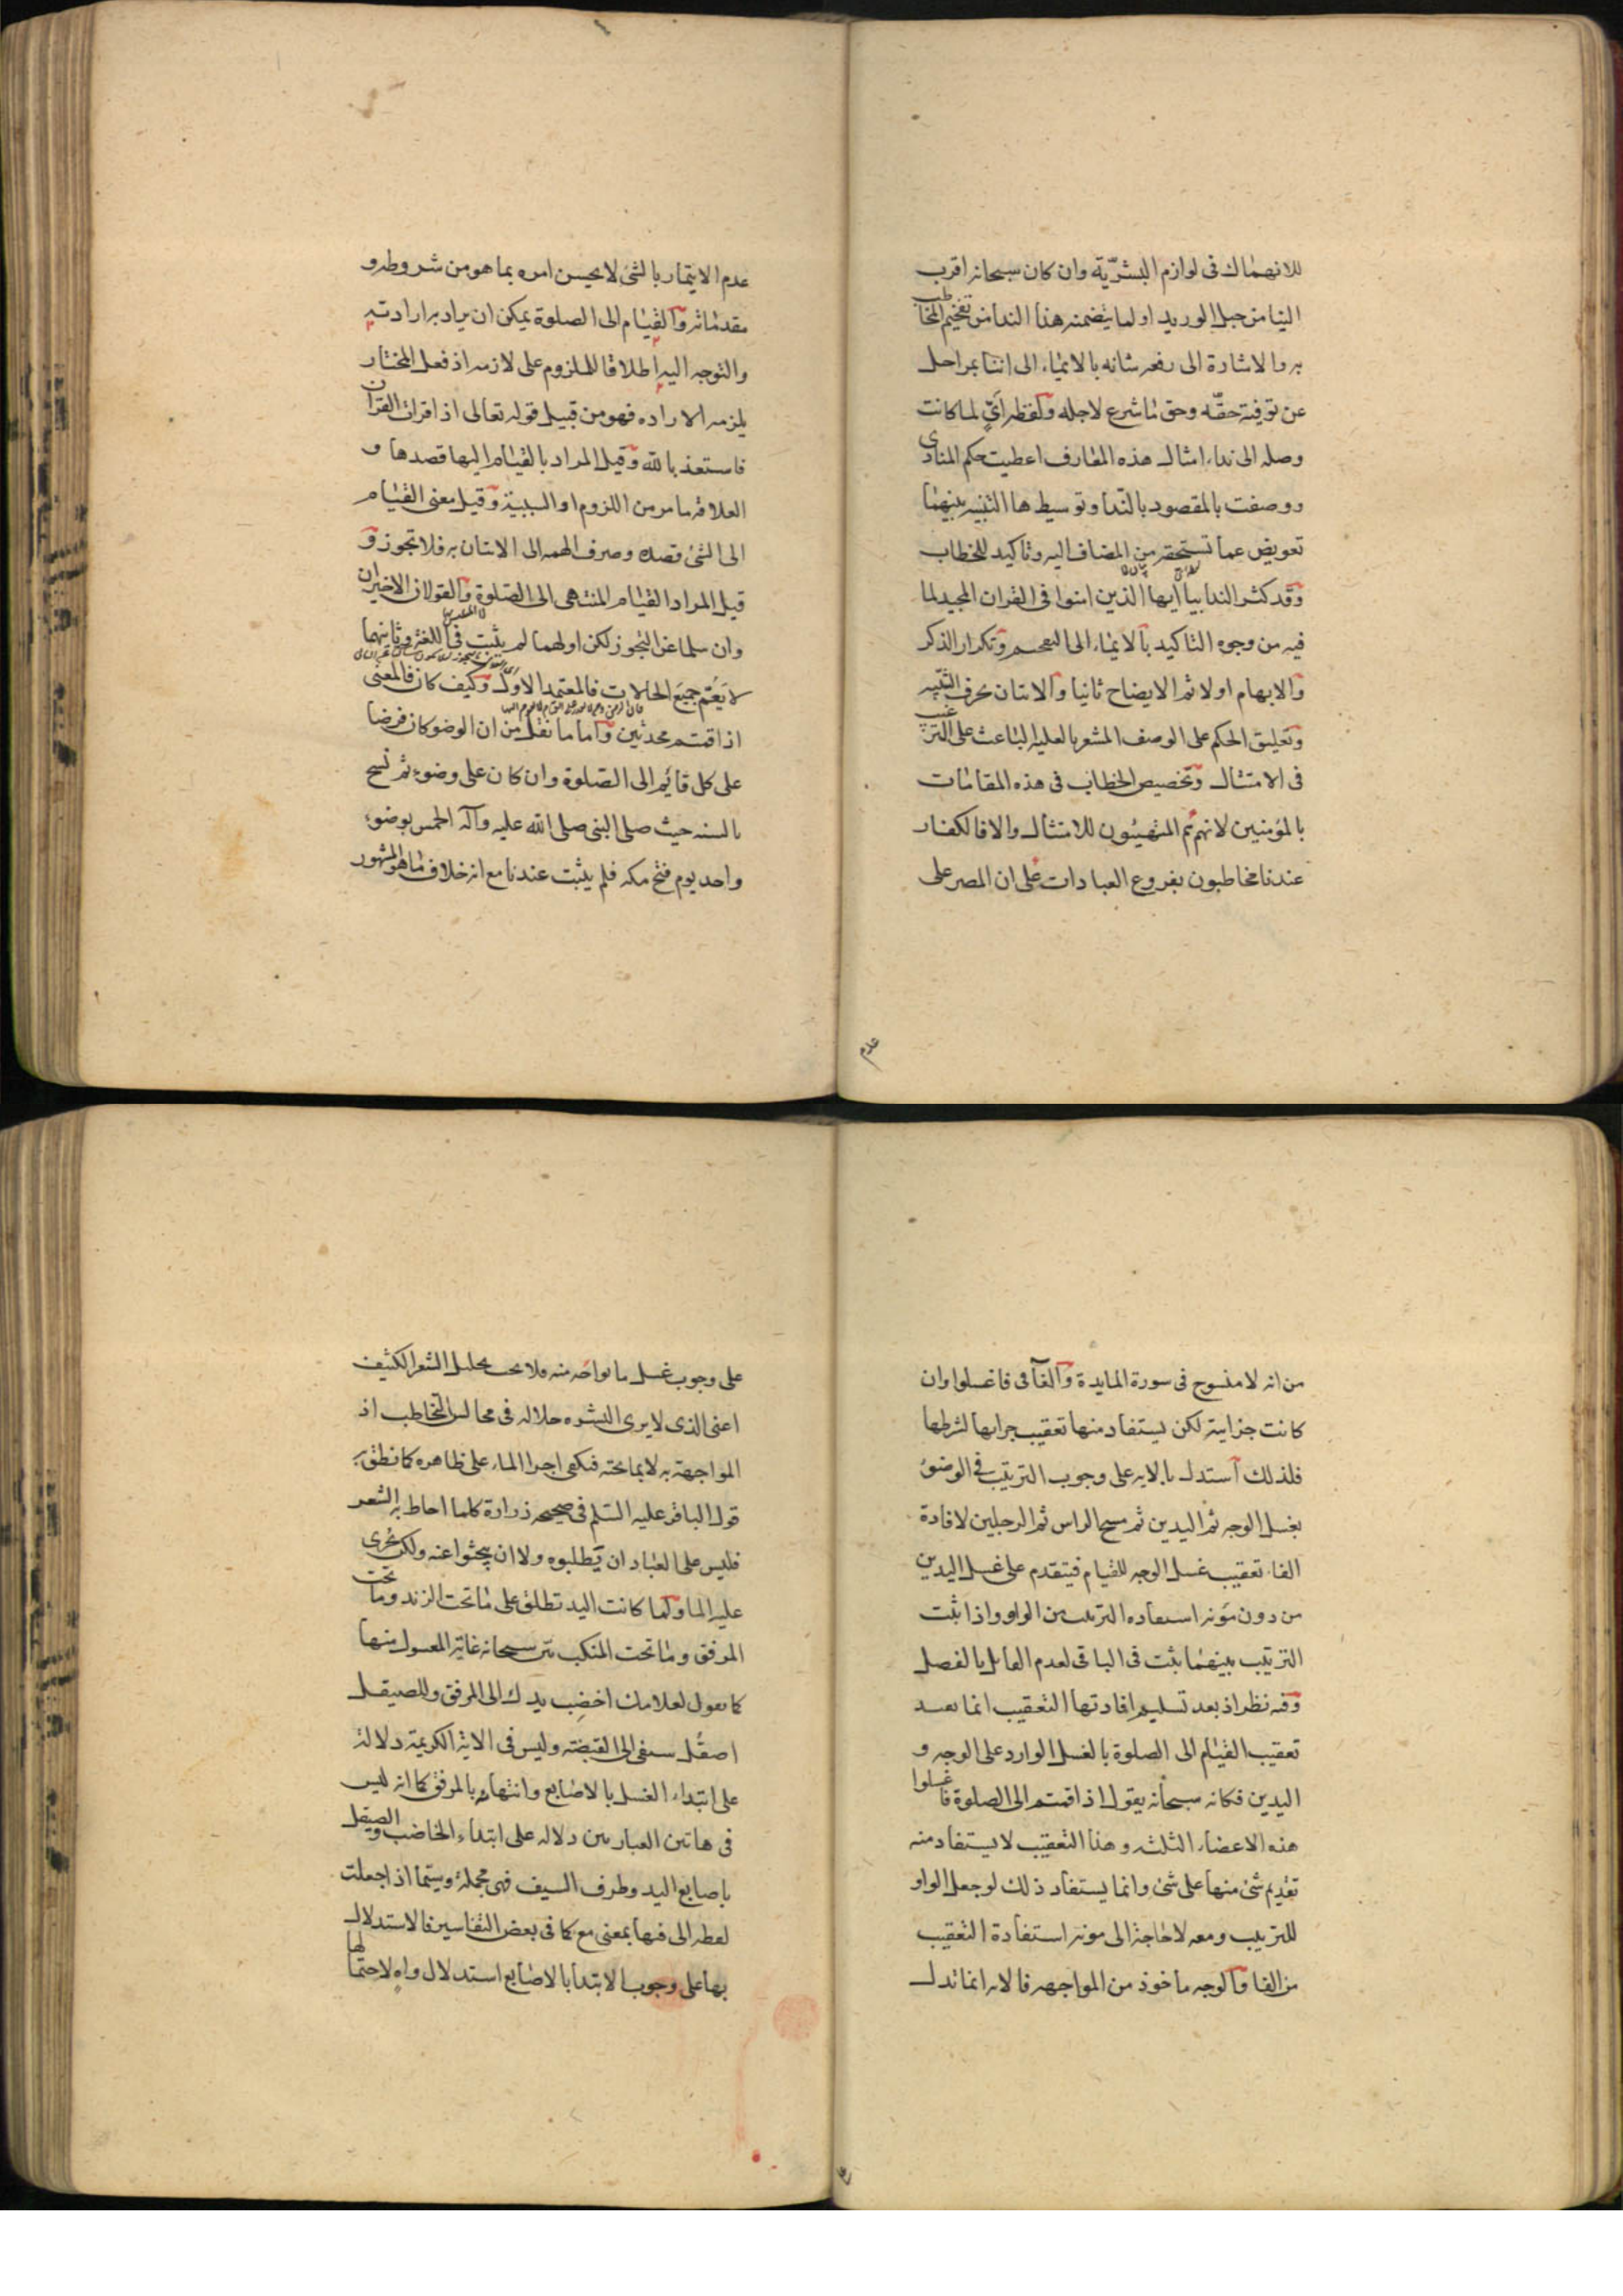 للانهماك فى لوازم البشريّة وان كان سبحانه اقرب
الينا من حبل الوريد او لما يتضمنه هذا الندا من تفخيم المخاطب
به والاشارة الى رفعه شانه بالايماء الى اننا بمراحل
عن توفية حقّه وحق ما شرع لاجله ولفظه اىّ لما كانت
وصله الى نداء امثال هذه المعارف اعطيت حكم المنادى
ووصفت بالمقصود بالنّدا وتوسيط ها التنبيه بينهما
تعويض عما تستحقه من المضاف اليه وتاكيد للخطاب
وقد كثر الندا بيا ايها الذين امنوا فى القران المجيد لما
فيه من وجوه التاكيد بالايماء الى التفخيم وتكرار الذكر
والابهام اولا ثم الايضاح ثانيا والاتيان بحرف التنبيه
وتعليق الحكم على الوصف المشعر بالعليه الباعث على الترغيب
فى الامتثال وتخصيص الخطاب فى هذه المقامات
بالمؤمنين لانهم هم المتهيئون للامتثال والا فالكفار
عندنا مخاطبون بفروع العبادات على ان المصر على
عدم
عدم الايتمار بالشئ لا يحسن امره بما هو من شروطه و
مقدماته والقيام الى الصلوة يمكن ان يراد به ارادته
والتوجه اليه اطلاقا للملزوم على لازمه اذ فعل المختار
يلزمه الاراده فهو من قبيل قوله تعالى اذا قرات القران
فاستعذ بالله وقيل المراد بالقيام اليها قصدها و
العلاقه ما مر من اللزوم او السببية وقيل معنى القيام
الى الشئ قصده وصرف الهمه الى الاتيان به فلا تجوز و
قيل المراد القيام المنتهى الى الصلوة والقولان الاخيران
وان سلما عن التجوز لكن اولهما لم يثبت فى اللغة وثانيهما
لا يَعُمّ جميع الحالات فالمعتمد الاول وكيف كان فالمعنى
اذا قمتم محدثين واما ما نقل من ان الوضو كان فرضا
على كل قائم الى الصلوة وان كان على وضوء ثم نسخ
بالسنه حيث صلى النبى صلى الله عليه وآله الخمس بوضوء
واحد يوم فتح مكه فلم يثبت عندنا مع انه خلاف ما هو المشهور
من انه لا منسوخ فى سورة المايدة والفآ فى فاغسلوا وان
كانت جزاىية لكن يستفاد منها تعقيب جزايها لشرطها
فلذلك استدل بالايه على وجوب الترتيب فى الوضوء
بغسل الوجه ثم اليدين ثم مسح الراس ثم الرجلين لافادة
الفاء تعقيب غسل الوجه للقيام فيتقدم على غسل اليدين
من دون مَونه استفاده الترتيب من الواو واذا ثبت
الترتيب بينهما ثبت فى الباقى لعدم القائل بالفصل
وفيه نظر اذ بعد تسليم افادتها التعقيب انما تفيد
تعقيب القيام الى الصلوة بالغسل الوارد على الوجه و
اليدين فكانه سبحانه يقول اذا قمتم الى الصلوة فاغسلوا
هذه الاعضاء الثلثه وهذا التعقيب لا يستفاد منه
تقديم شئ منها على شئ وانما يستفاد ذلك لو جعل الواو
للترتيب ومعه لا حاجة الى مونه استفادة التعقيب
من الفا والوجه ماخوذ من المواجهه فالايه انما تدل
على وجوب غسل ما يواجَه منه فلا يجب تخليل الشعر الكثيف
اعنى الذى لا يرى البشره خلاله فى مجالس التخاطب اذ
المواجهة به لا بما تحته فيكفى اجرا الماء على ظاهره كما نطق به
قول الباقر عليه السّلم فى صحيحه زرارة كلما احاط به الشعر
فليس على العباد ان يَطلبوه ولا ان يبحثوا عنه ولكن يُجرى
عليه الما ولما كانت اليد تطلق على ما تحت الزند وما تحت
المرفق وما تحت المنكب بيّن سبحانه غاية المغسول منها
كما يقول لغلامك اخضِب يدك الى المرفق وللصيقل
اصقُل سيفى الى القبضته وليس فى الاية الكريمة دلالة
على ابتداء الغسل بالاصابع وانتهائه بالمرفق كما انه ليس
فى هاتين العبارتين دلاله على ابتداء الخاضب والصيقل
باصابع اليد وطرف السيف فهى مجملة وسيّما اذا جعلت
لفظه الى فيها بمعنى مع كما فى بعض التفاسير فالاستدلال
بها على وجوب الابتدا بالاصابع استدلال واهٍ لاحتمالها